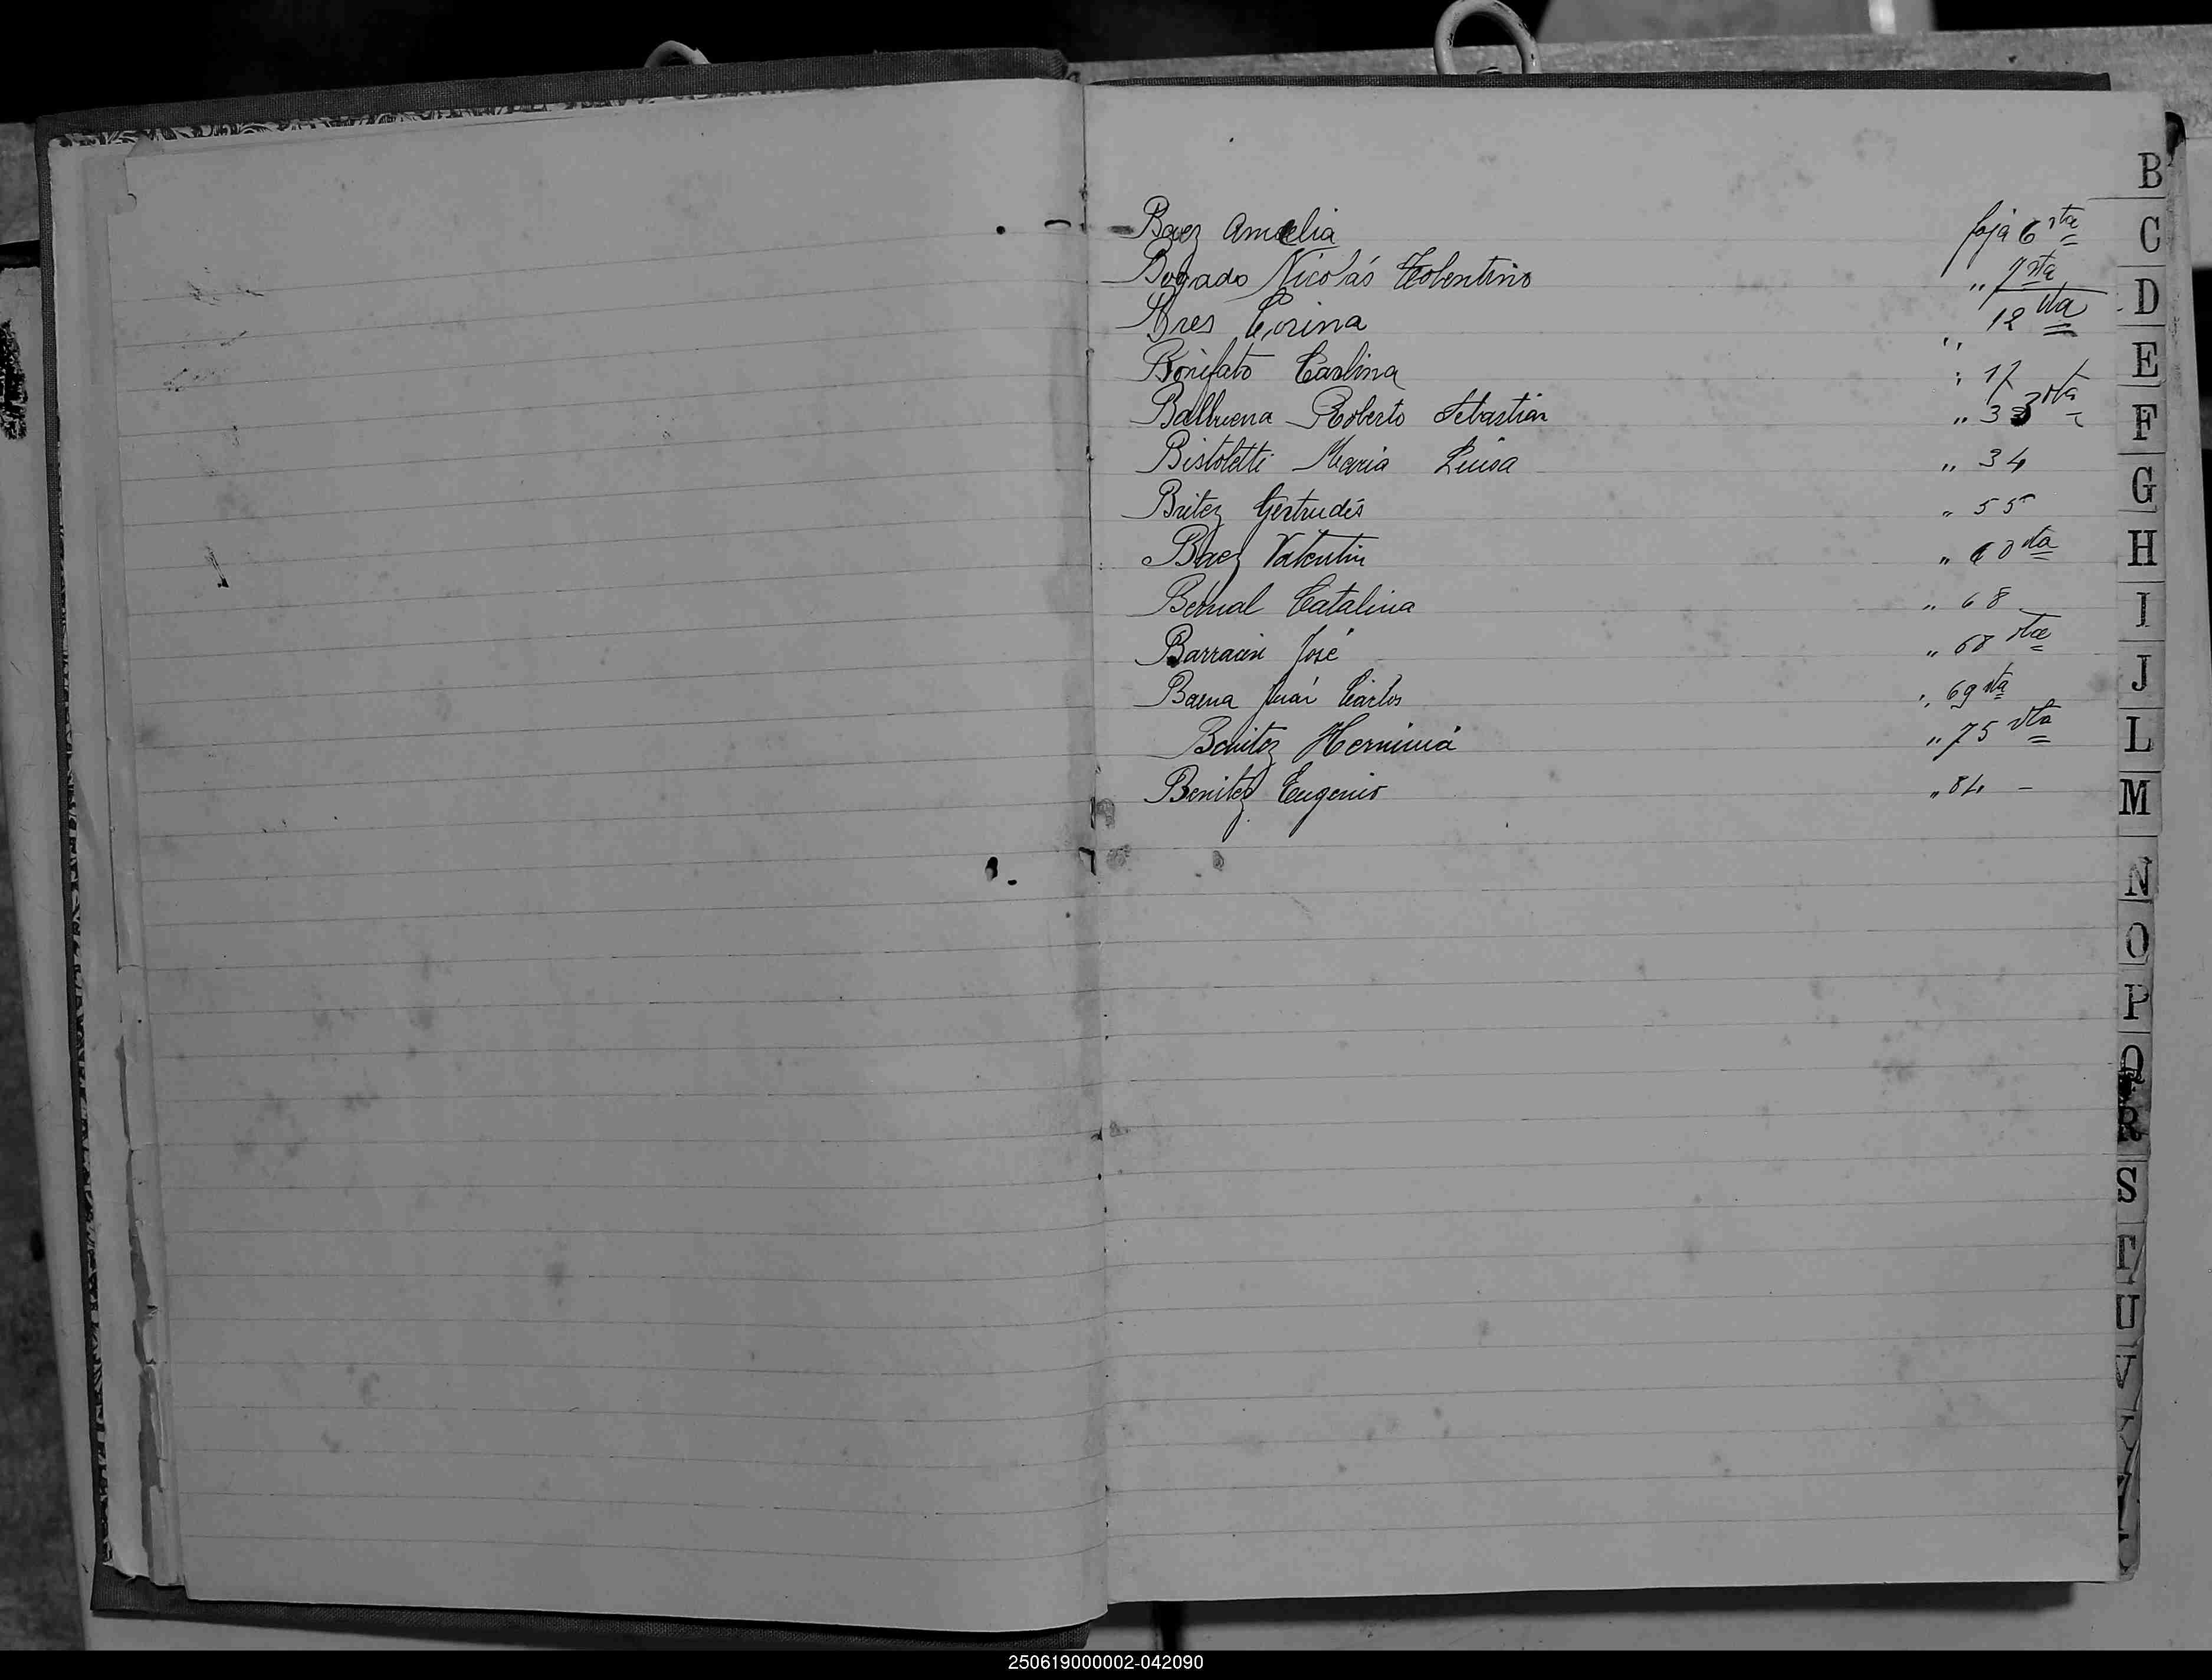 B
Baez Amelia foja 6 vta
C
Bogado Nicolás Tolentino " 7 vta
D
Corina " 12 vta
E
Bonifato Carlina " 17
Balbuena Roberto Sebastián " 33 vta
F
Bistoletti Maria Luisa " 34
G
Britez Gertrudis " 55
H
Baez Valentin " 60 vta
I
Bernal Catalina " 68
José " 68 vta
J
Baena Juán Cárlos " 69 vta
L
Benitez Herminia " 75 vta
M
Benitez Eugenio " 84 -
N
O
P
Q
R
S
T
U
V
Y
250619000002-042090